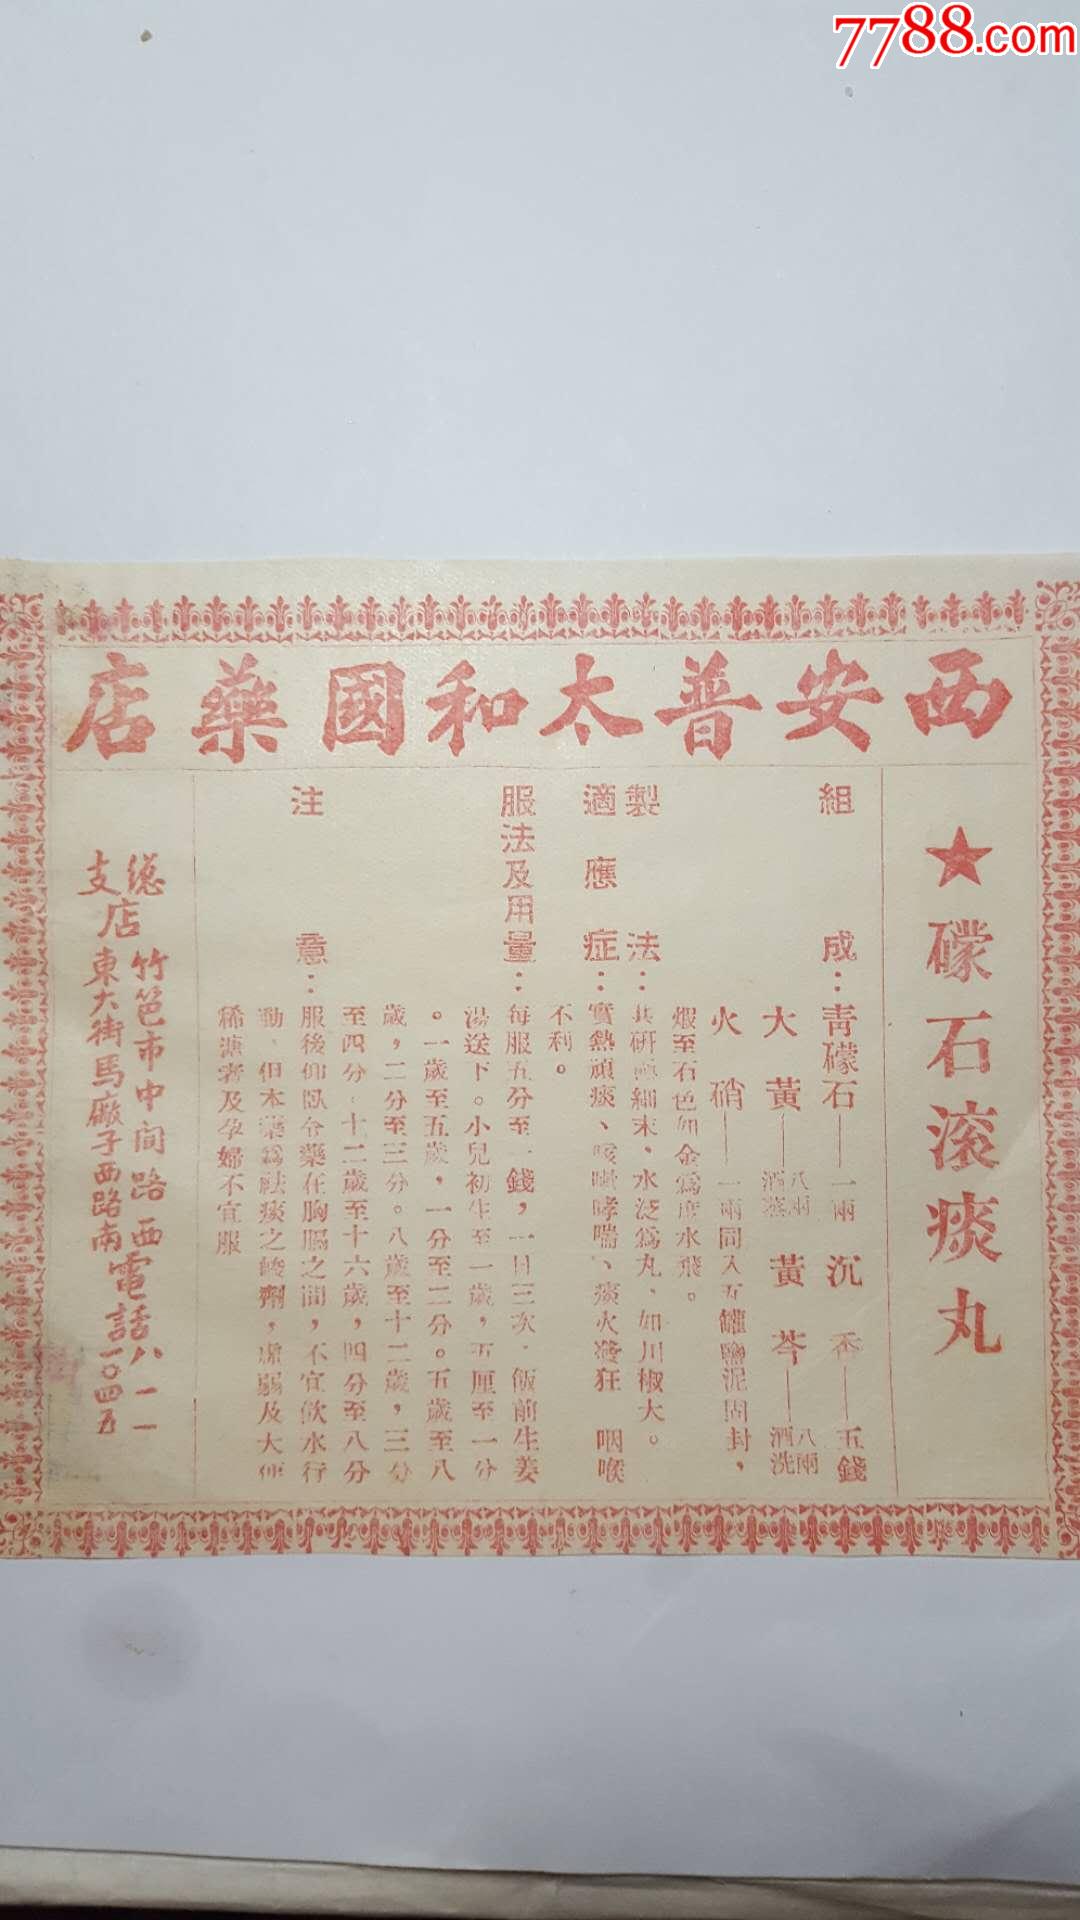 7788.com
西安普太和國藥店
★礞石滚痰丸
組成：青礞石——一兩 沉香——五錢
大黃——八兩酒蒸 黃芩——八兩酒洗
火硝——一兩同入瓦罐鹽泥固封，
煆至石色如金爲度水飛。
製法：共研細末、水泛爲丸、如川椒大。
適應症：實熱頑痰、咳嗽哮喘、痰火發狂 咽喉
不利。
服法及用量：每服五分至一錢，一日三次．飯前生姜
湯送下。小兒初生至一歲，五厘至一分
。一歲至五歲，一分至二分。五歲至八
歲，二分至三分。八歲至十二歲，三分
至四分．十二歲至十六歲，四分至八分
注意：服後仰臥令藥在胸膈之間，不宜飲水行
動．但本藥爲祛痰之峻劑，虛弱及大便
稀溏者及孕婦不宜服
總店 竹笆市中间路西 電話 八一一
支店 東大街馬廠子西路南 電話 一〇四五